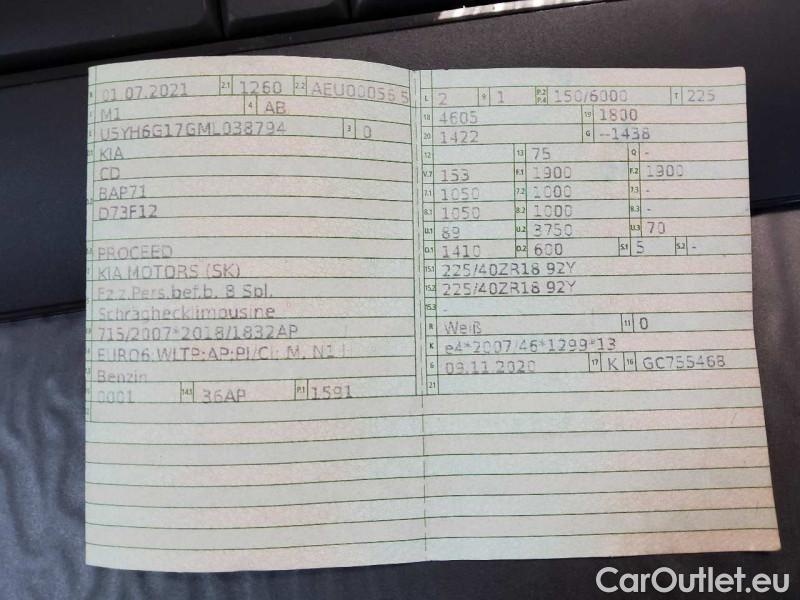 B 01.07.2021 2.1 1260 2.2 AEU00056 5
J M1 4 AB
E U5YH6G17GML038794 3 0
D.1 KIA
CD
D.2 BAP71
D73F12
D.3 PROCEED
2 KIA MOTORS (SK)
5 Fz.z.Pers.bef.b. 8 Spl.
Schräghecklimousine
715/2007*2018/1832AP
14 EURO6;WLTP;AP;PI/CI; M, N1 I
Benzin
0001 14.1 36AP P.1 1591
22
L 2 9 1 P.2 P.4 150/6000 T 225
18 4605 19 1800
20 1422 G --1438
12 13 75 Q -
V.7 153 F.1 1900 F.2 1900
7.1 1050 7.2 1000 7.3 -
8.1 1050 8.2 1000 8.3 -
U.1 89 U.2 3750 U.3 70
O.1 1410 O.2 600 S.1 5 S.2 -
15.1 225/40ZR18 92Y
15.2 225/40ZR18 92Y
15.3 -
R Weiß 11 0
K e4*2007/46*1299*13
6 09.11.2020 17 K 16 GC755468
21
CarOutlet.eu